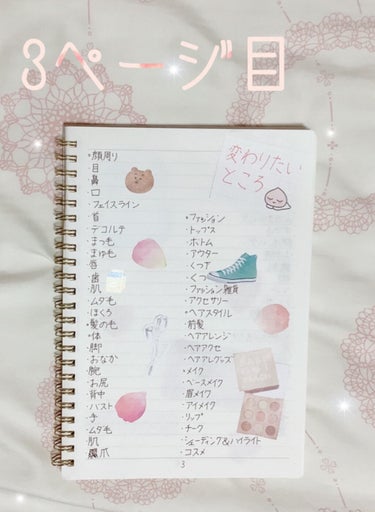 3ページ目
変わりたい
ところ
•顔周り
・目
・鼻
・口
・フェイスライン
・首
・デコルテ
・まつ毛
・まゆ毛
・唇
・歯
・肌
・ムダ毛
・ほくろ
•髪の毛
•体
・脚
・おなか
・腕
・お尻
・背中
・バスト
・手
・ムダ毛
・肌
・爪
•ファッション
・トップス
・ボトム
・アウター
・くつ下
・くつ
・ファッション雑貨
・アクセサリー
•ヘアスタイル
・前髪
・ヘアアレンジ
・ヘアアクセ
・ヘアアレグッズ
•メイク
・ベースメイク
・眉メイク
・アイメイク
・リップ
・チーク
・シェーディング&ハイライト
・コスメ
3